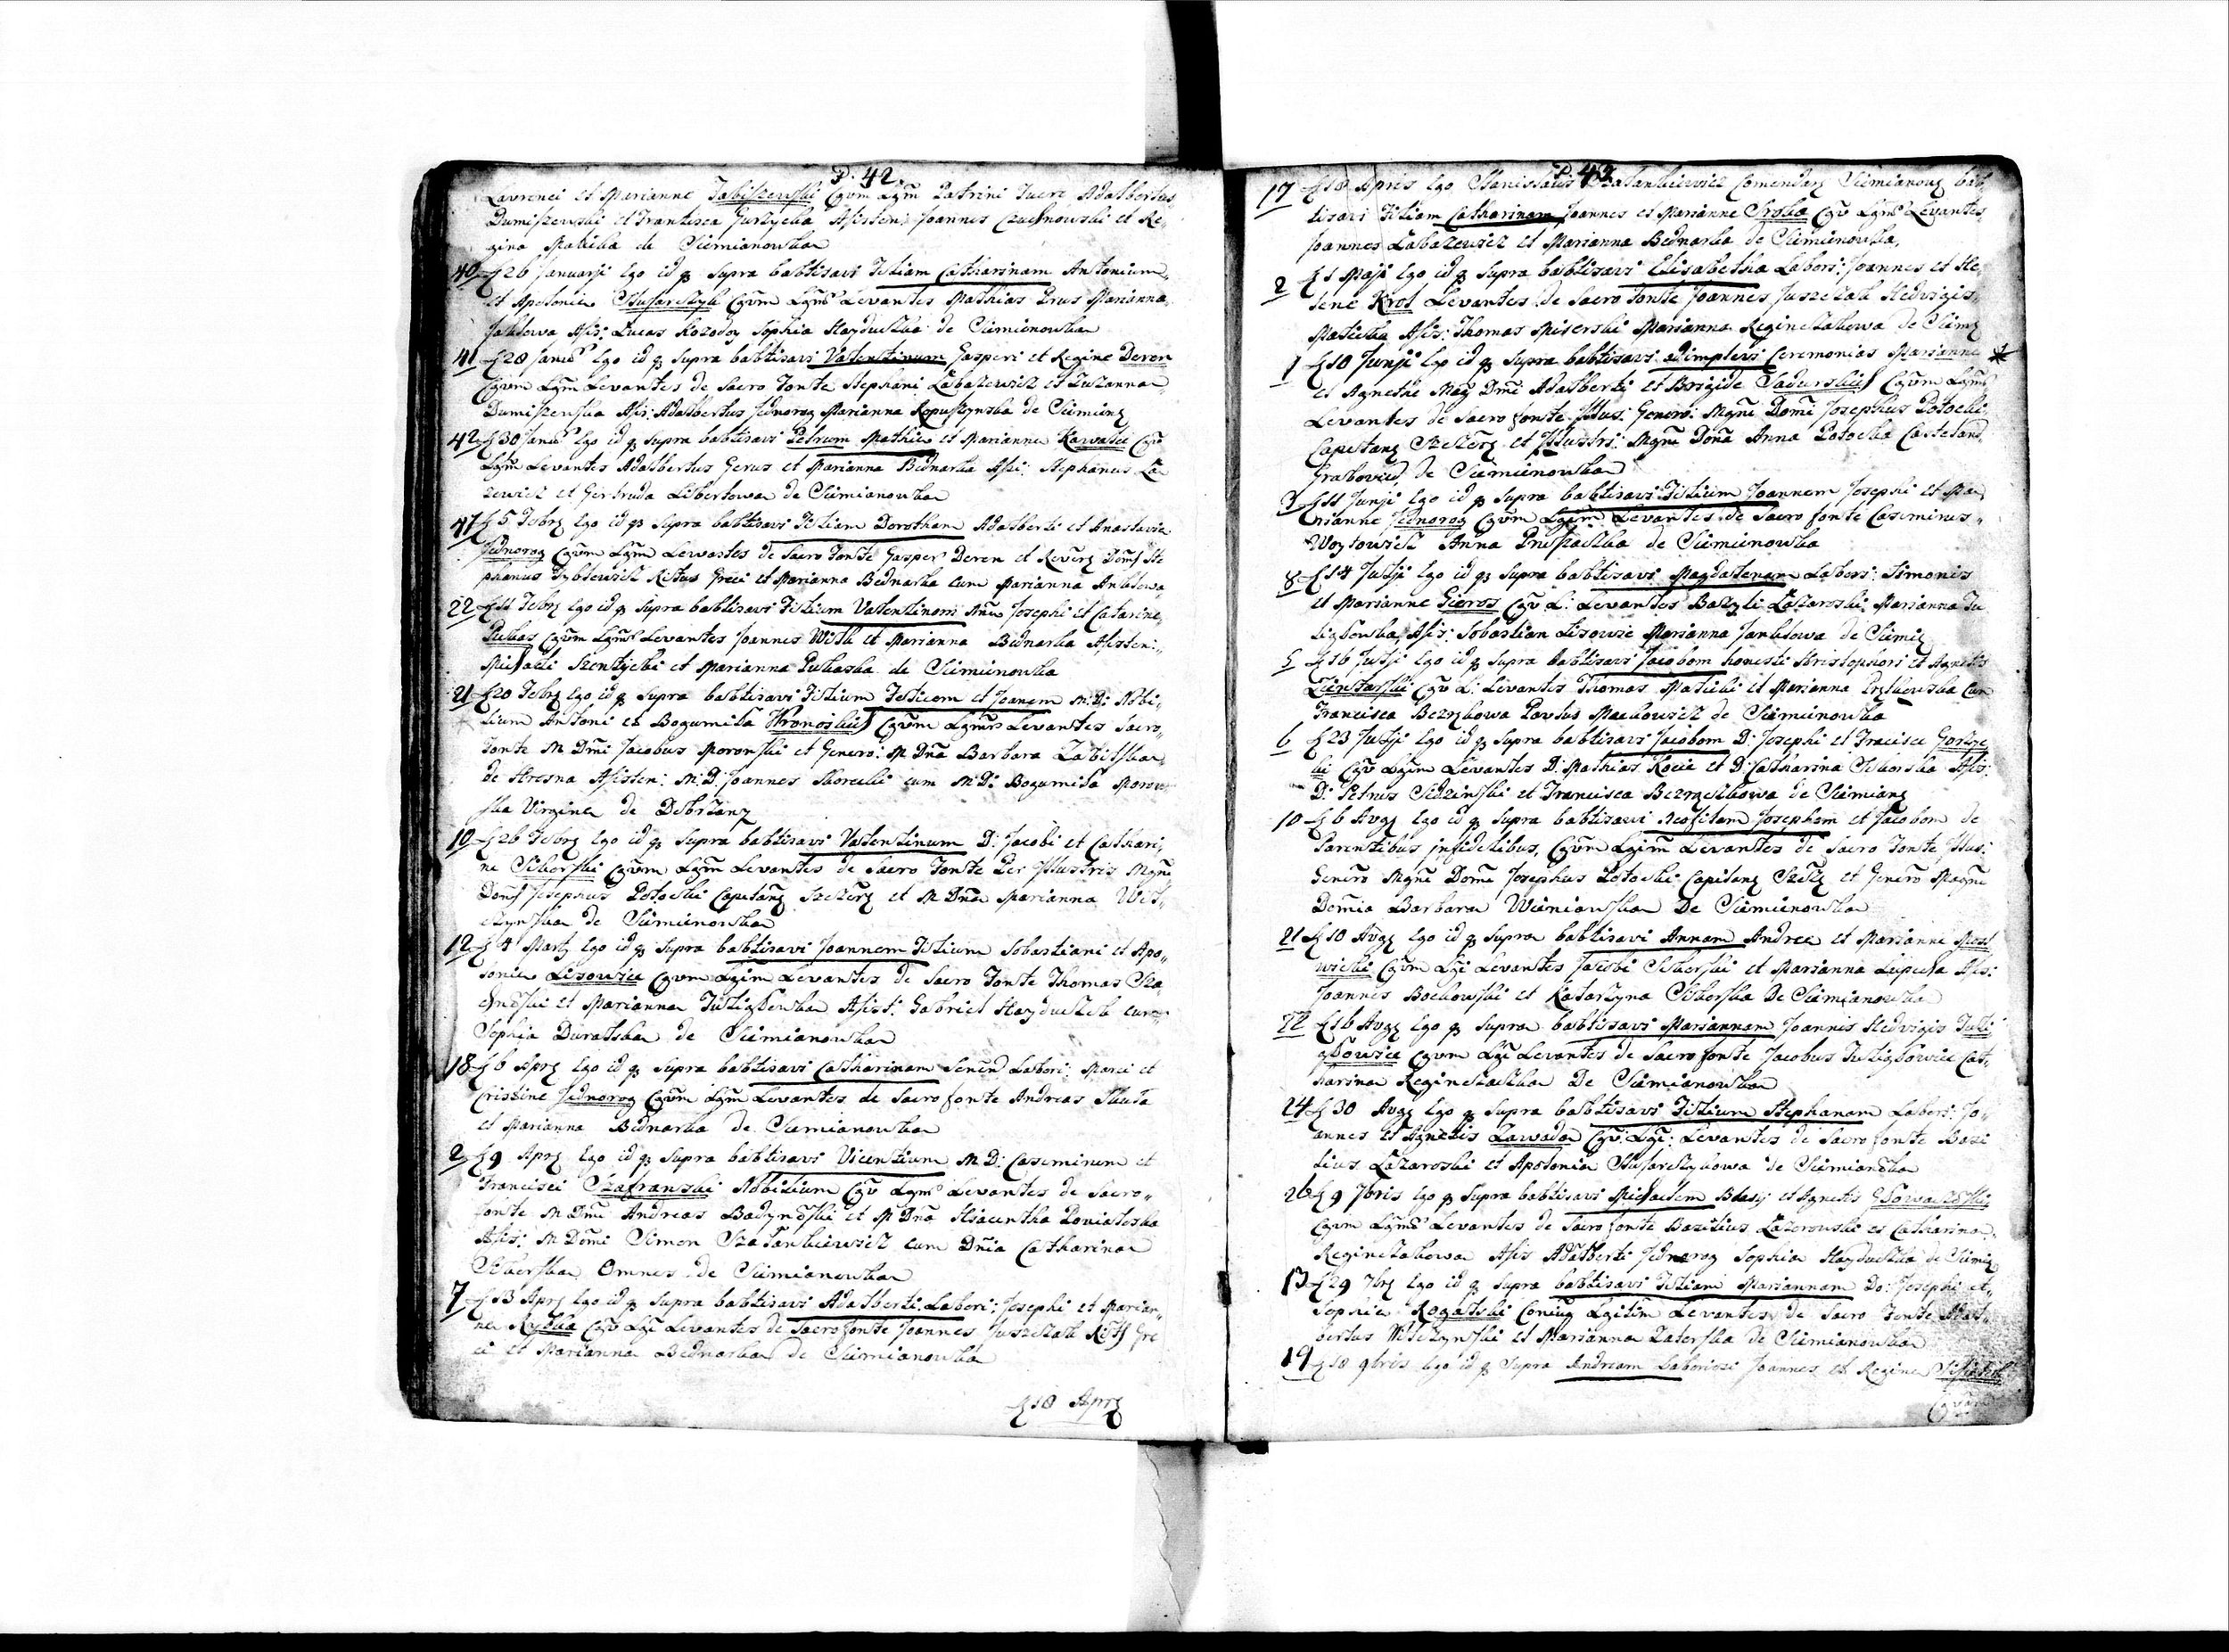 P. 42.
Lavrenci et Marianne Jabiszewski Cgvm Lgm Patrini Fuere Adalbertus
Dumiszewski et Francisca Gurzycka Assisten: Joannes Czachnowski et Re,,
gina Maliska de Siemianowka
40 D 26 Januarji Ego id q supra babtisavi Filiam Catharinam Antonium
et Apolonie Slusarczyk Cgvm Lgm Levantes Mathias Prus Marianna
Jaklowa Asis: Lucas Kozodoy Sophia Hayduczka de Siemianowka
41 D 28 Janu Ego id q supra babtisavi Valentinum Gasperi et Regine Deren
Cgvm Lgm Levantes de Sacro Fonte Stephani Labazewicz et Zuzanna
Dumiszewska Asis: Adalbertus Jednorog Marianna Kopuszynska de Siemian
42 D 30 Janu Ego id q supra babtisavi Petrum Mathie et Marianne Kawalec Cgv
Lgm Levantes Adalbertus Gerus et Marianna Bednarka Asis: Stephanus La
zewicz et Gertruda Libertowa de Siemianowka
47 D 5 Febr Ego id q supra babtisavi Filiam Dorotham Adalberti et Anastasie
Jednorog Cgvm Lgm Levantes de Sacro Fonte Gasper Deren et Rever Dom Ste
phanus Ritus Greci et Marianna Bednarka cum Marianna Antklowa
22 D 11 Febr Ego id q supra babtisavi Filium Valentinom Josephi et Catarine
Pukas Cgvm Lgm Levantes Joannes Wilk et Marianna Bednarka Assisten:
Michaeli Szentycki et Marianna Pukaska de Siemianowka
21 D 20 Febr Ego id q supra babtisavi Filium Felicem et Joanem M: D: Nobi,
lium Antoni et Bogumila Wronoskie Cgvm Lgm Levantes Sacro,,
Fonte M Dmi Jacobus Moronski et Genero: M Dna Barbara Zabilska
de Stresna Assisten: M: D: Joannes Skorecki cum M: D: Bogumila Morow
ska Virgine de Debrzany
10 D 26 Febr Ego id q supra babtisavi Valentinum D: Jacobi et Cathari,
ne Sikorski Cgvm Lgm Levantes de Sacro Fonte Per Illustris Mgne
Dom Josephus Potocki Capitan Szczer et M Dna Marianna Wil,
czynska de Siemianowka
12 D 4 Marty Ego id q supra babtisavi Joannem Filium Sobastiani et Apo,,
lonie Lisowicz Cgvm Lgim Levantes de Sacro Fonte Thomas Cza
chnoski et Marianna Assist: Gabriel Hayduczek cum
Sophia Duralska de Siemianowka
18 D 6 Apr Ego id q supra babtisavi Catharinam Labori: Marci et
Cristine Jednorog Cgvm Lgm Levantes de Sacro fonte Andreas Skuta
et Marianna Bednarka de Siemianowka
2 D 9 Apr Ego id q supra babtisavi Vicentium M D: Casemirum et
Francisci Szafranski Nobilium Cgv Lgm Levantes de Sacro,,
fonte M Dmi Andreas Badynoski et M Dna Hiacentha Poniatoska
Asis: M Domi Simon Szalankiewicz cum Dnia Catharina
Sikorska Omnes de Siemianowka
7 D 13 Apr Ego id q supra babtisavi Adalberti Labori: Josephi et Marian,
ne Rybka Cgv Lgi Levantes de Sacro fonte Joannes Juszczak Rits Gre
ci et Marianna Bednarka de Siemianowka
D 18 Apr
P. 43
17 D 18 Apris Ego Stanislaus Szalankiewicz Comendar Siemianow bab,
tisavi Filiam Catharinam Joannes et Marianne Sroka Cgv Lgm Levantes
Joannes Labazewicz et Marianna Bednarka de Siemianowka,
2 D 1 Maji Ego id q supra babtisavi Elisabetha Labori: Joannes et He,
lene Krol Levantes de Sacro Fonte Joannes Juszczak Hedvigis,
Masielka Asis: Thomas Miserski Marianna Reginczakowa de Siemi
1 D 10 Junji Ego id q supra babtisavi adimplevi Ceremonias Marianne *
et Agnethe Mag Dmi Adalberti et Brigide Sadurskie Cgvm Lgm
Levantes de Sacro fonte Illus: Genero: Mgne Domi Josephus Potocki,
Capitany Szczerz et Illustri: Mgne Dona Anna Potocka Casteland,
Grabovie, de Siemianowka
3 D 11 Junji Ego id q supra babtisavi Filium Joannem Josephi et Ma,
rianne Jednorog Cgvm Lgim Levantes de Sacro fonte Casemirus,,
Woytowicz Anna Pruszaczka de Siemianowka
8 D 14 Julji Ego id q supra babtisavi Magdalenam Labori: Simonis
et Marianne Gieros Cgv L: Levantes Bazyli Lazaroski Marianna Ju
Asis: Sobastian Lisowic Marianna Janiklowa de Siemi
5 D 16 Julji Ego id q supra babtisavi Jacobom honesti Kristophori et Agnetis
Cgv L: Levantes Thomas Masicki et Marianna cum
Francisca Bezrybowa Pavlus Mackowicz de Siemianowka
6 D 23 Julji Ego id q supra babtisavi Jacobom D: Josephi et Fracisce Gorzyc
ki Cgv Lgim Levantes D: Mathias Kocie et D: Catharina Sikorska Asis:
D: Petrus Sedzinski et Francisca Bezrączkowa de Siemian
10 D 6 Avgy Ego id q supra babtisavi Neofitam Josepham et Jacobom de
Parentibus infidelibus, Cgvm Lgim Levantes de Sacro Fonte Illus:
Genero Mgne Dome Josephus Potocki Capitany Szcz et Genero Magne
Domia Barbara Wieniawska De Siemianowka
21 D 10 Avgy Ego id q supra babtisavi Annam Andree et Marianne Most
wicki Cgvm Lgi Levantes Jacobi Sikorski et Marianna Lepucka Asis:
Joannes Bochowski et Katarzyna Sikorska De Siemianowka
22 D 16 Avgy Ego q supra babtisavi Mariannam Joannis Hedvigis Juli
Cgvm Lgi Levantes de Sacro fonte Jacobus Cat,
harina Reginczaczka De Siemianowka
24 D 30 Avgy Ego q supra babtisavi Filium Stephanam Labori: Jo,
annes et Agnetis Zawada Cgv: Lgi: Levantes de Sacro fonte Bazi
lius Lazaroski et Apolonia Slusarczykowa de Siemianoka
26 D 9 7bris Ego q supra babtisavi Michaelem Blasij et Agnetis Glowaczoski
Cgvm Lgm Levantes de Sacro fonte Bazilius Lazorowski et Catharina,
Reginczakowa Asis Adalberti Jednorog Sophia Hayduczka de Siemi
13 D 29 7br Ego id q supra babtisavi Filiam Mariannam Do: Josephi et
Sophie Rogalski Coniug Lgitim Levantes de Sacro Fonte Adal,
bertus Wilczynski et Marianna Zaterska de Siemianowka
19 D 18 9bris Ego id q supra Andream Laboriosi Joannes et Regine
Cgvm